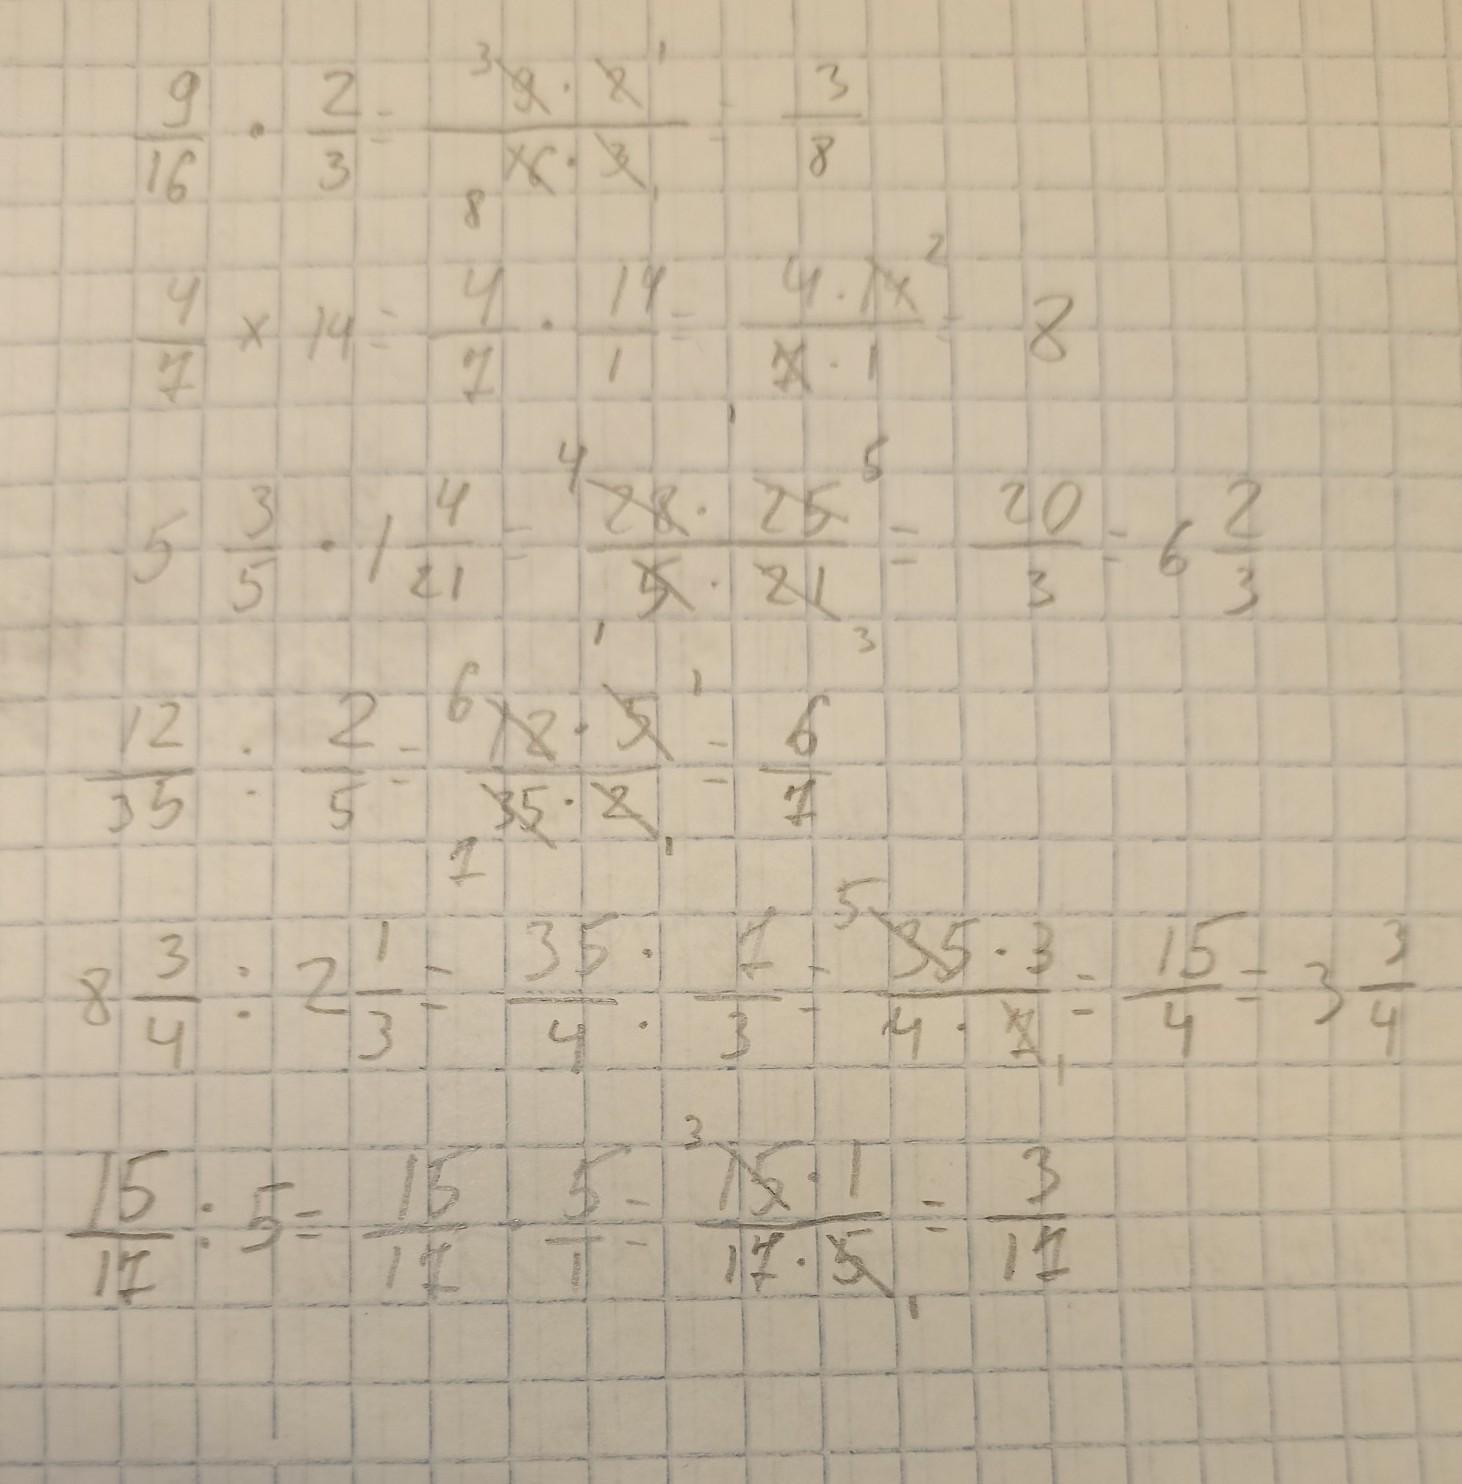 9/16 · 2/3 = 3 9 · 2 1 / 8 16 · 3 1 = 3/8
4/7 × 14 = 4/7 · 14/1 = 4 · 14 2 / 1 7 · 1 = 8
5 3/5 · 1 4/21 = 4 28 · 25 5 / 1 5 · 21 3 = 20/3 = 6 2/3
12/35 : 2/5 = 6 12 · 5 1 / 7 35 · 2 1 = 6/7
8 3/4 : 2 1/3 = 35/4 : 7/3 = 5 35 · 3 / 4 · 7 1 = 15/4 = 3 3/4
15/17 : 5 = 15/17 · 5/1 = 3 15 · 1 / 17 · 5 1 = 3/17